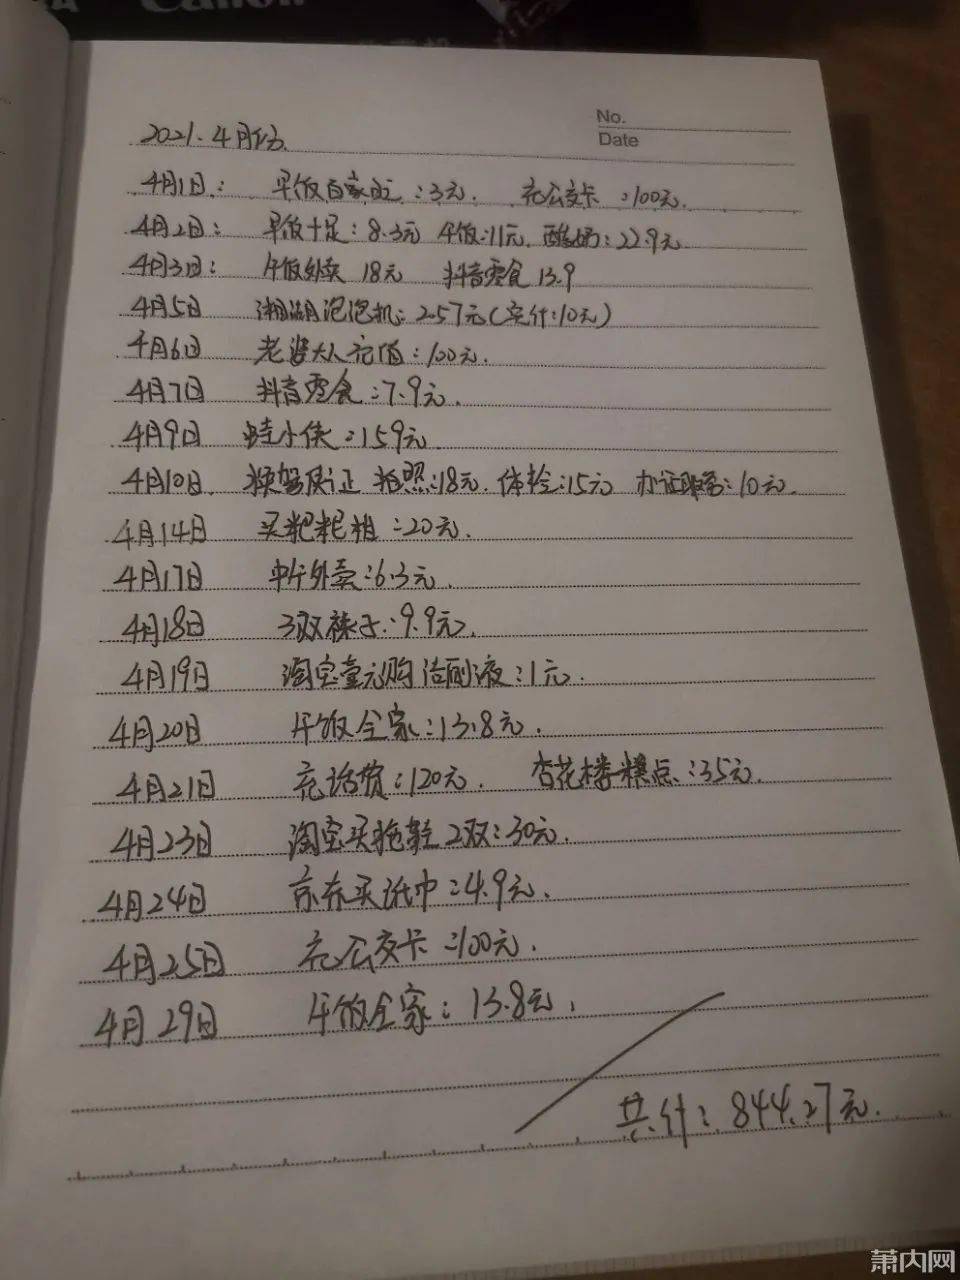 Canon
No.
Date
2021.4月份.
4月1日: 早饭百家旺:3元. 充公交卡:100元.
4月2日: 早饭十足:8.3元 午饭:11元. 酸奶:22.9元
4月3日: 午饭外卖 18元 抖音零食 13.9
4月5日 湘湖泡泡机:2.57元(实付:10元)
4月6日 老婆大人充值:100元.
4月7日 抖音零食:7.9元.
4月9日 蛙小侠:159元
4月10日. 换驾驶证 拍照:18元. 体检:15元 办证:10元.
4月14日 买粑粑柑:20元.
4月17日 中午外卖:6.3元.
4月18日 3双袜子:9.9元.
4月19日 淘宝壹元购洁厕液:1元.
4月20日 午饭全家:13.8元.
4月21日 充话费:120元. 杏花楼糕点:35元.
4月23日 淘宝买拖鞋2双:30元.
4月24日 京东买纸巾:4.9元.
4月25日 充公交卡:100元.
4月29日 午饭全家:13.8元.
共计:844.27元.
萧内网